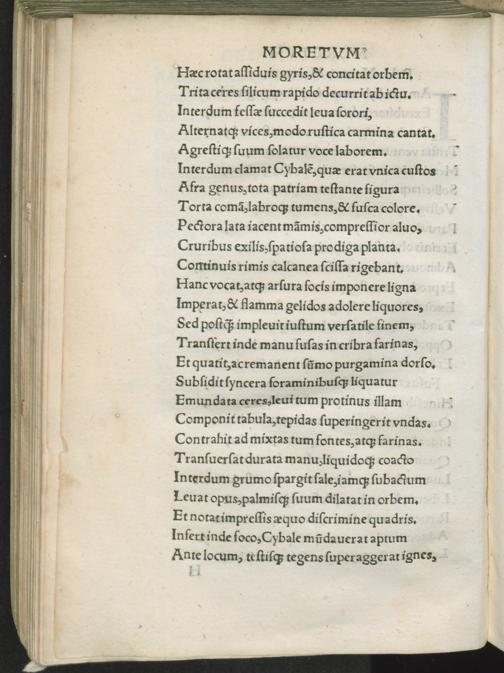 MORETVM
Hæc rotat assiduis gyris,& concitat orbem̄.
Trita ceres silicum rapido decurrit ab ictu.
Interdum fessæ succedit leua sorori,
Alternatq; vices,modo rustica carmina cantat.
Agrestiq; suum solatur voce laborem.
Interdum clamat Cybalē,quæ erat vnica custos
Afra genus,tota patriam testante figura
Torta comā,labroq; tumens,& fusca colore.
Pectora lata iacent māmis,compressior aluo,
Cruribus exilis,spatiosa prodiga planta.
Continuis rimis calcanea scissa rigebant.
Hanc vocat,atq; arsura focis imponere ligna
Imperat,& flamma gelidos adolere liquores,
Sed postq̄ impleuit iustum versatile finem,
Transfert inde manu fusas in cribra farinas,
Et quatit,ac remanent sūmo purgamina dorso.
Subsidit syncera foraminibusq; liquatur
Emundata ceres,leui tum protinus illam
Componit tabula,tepidas superingerit vndas.
Contrahit ad mixtas tum fontes,atq; farinas.
Transuersat durata manu,liquidoq; coacto
Interdum grumo spargit sale,iamq; subactum
Leuat opus,palmisq; suum dilatat in orbem.
Et notat impressis æquo discrimine quadris.
Insert inde foco,Cybale mūdauerat aptum
Ante locum, testisq; tegens superaggerat ignes,